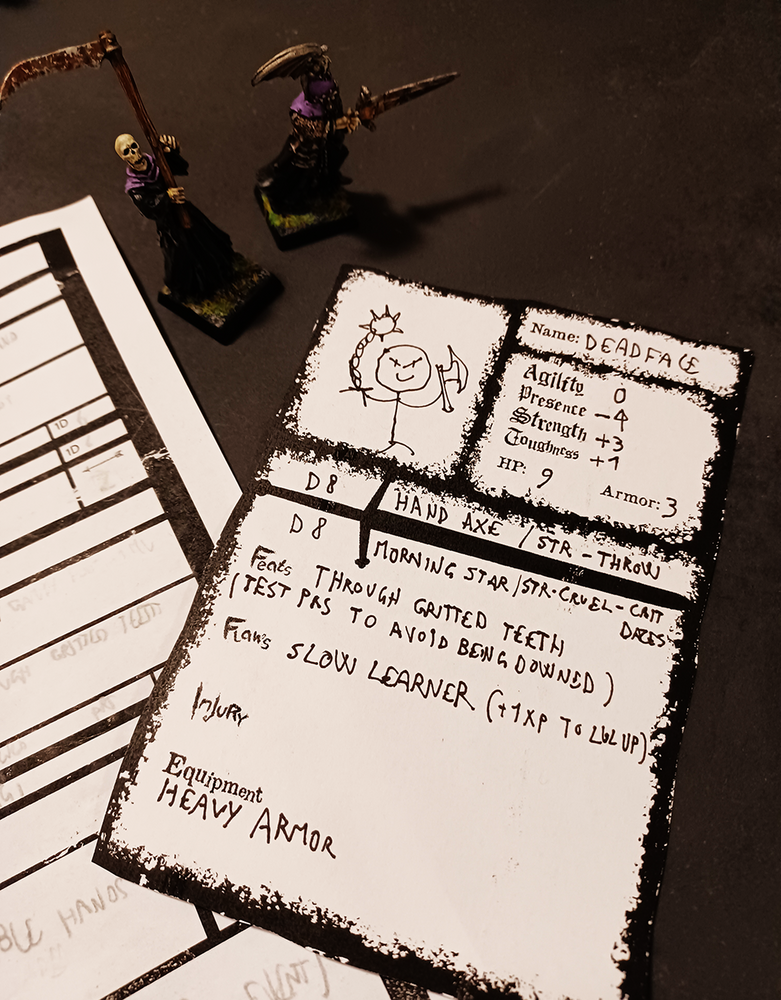 Name: DEADFACE
Agility 0
Presence -4
Strength +3
Toughness +1
HP: 9 Armor: 3
D8 HAND AXE / STR - THROW
D8 MORNING STAR / STR - CRUEL - CRIT
DAZES
Feats THROUGH GRITTED TEETH
(TEST PRS TO AVOID BEING DOWNED)
Flaws SLOW LEARNER (+1 XP TO LVL UP)
INJURY
Equipment
HEAVY ARMOR
1D
1D
GRITTED TEETH
BLE HANDS